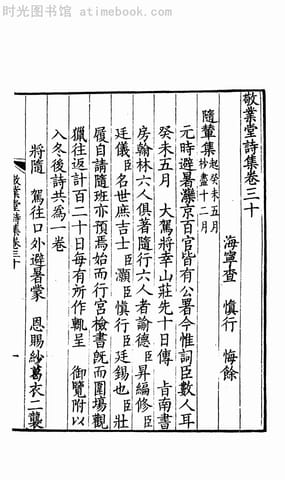 时光图书馆 - atimebook.com
敬業堂詩集卷三十
海寧查 慎行 悔餘
隨輦集起癸未五月抄盡十二月
元時避暑灤京百官皆有公署今惟詞臣數人耳
癸未五月 大駕將幸山莊先十日傳 旨南書
房翰林六人俱著隨行六人者諭德臣昇編修臣
廷儀臣名世庶吉士臣灝臣慎行臣廷錫也臣壯
履自請隨班亦預焉始而行宫檢書旣而圍場觀
獵往返計百二十日每有所作輒呈 御覽附以
入冬後詩共為一卷
將隨 駕往口外避暑蒙 恩賜紗葛衣二襲
敬業堂詩集卷三十
一